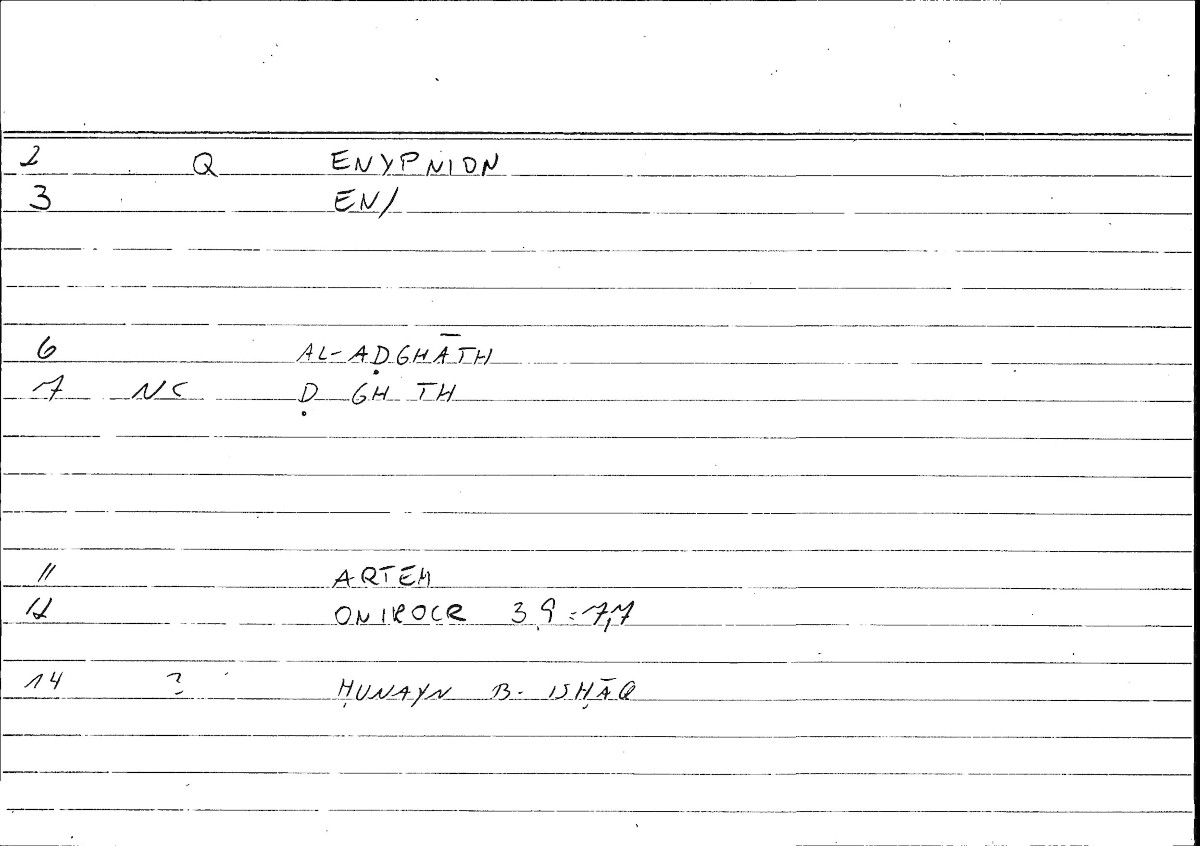 2 Q ENYPNION
3 EN/
6 AL-AḌGHĀTH
7 NC Ḍ GH TH
11 ARTEM
12 ONIROCR 3,9=7,7
14 ? ḤUNAYN B. ISḤĀQ